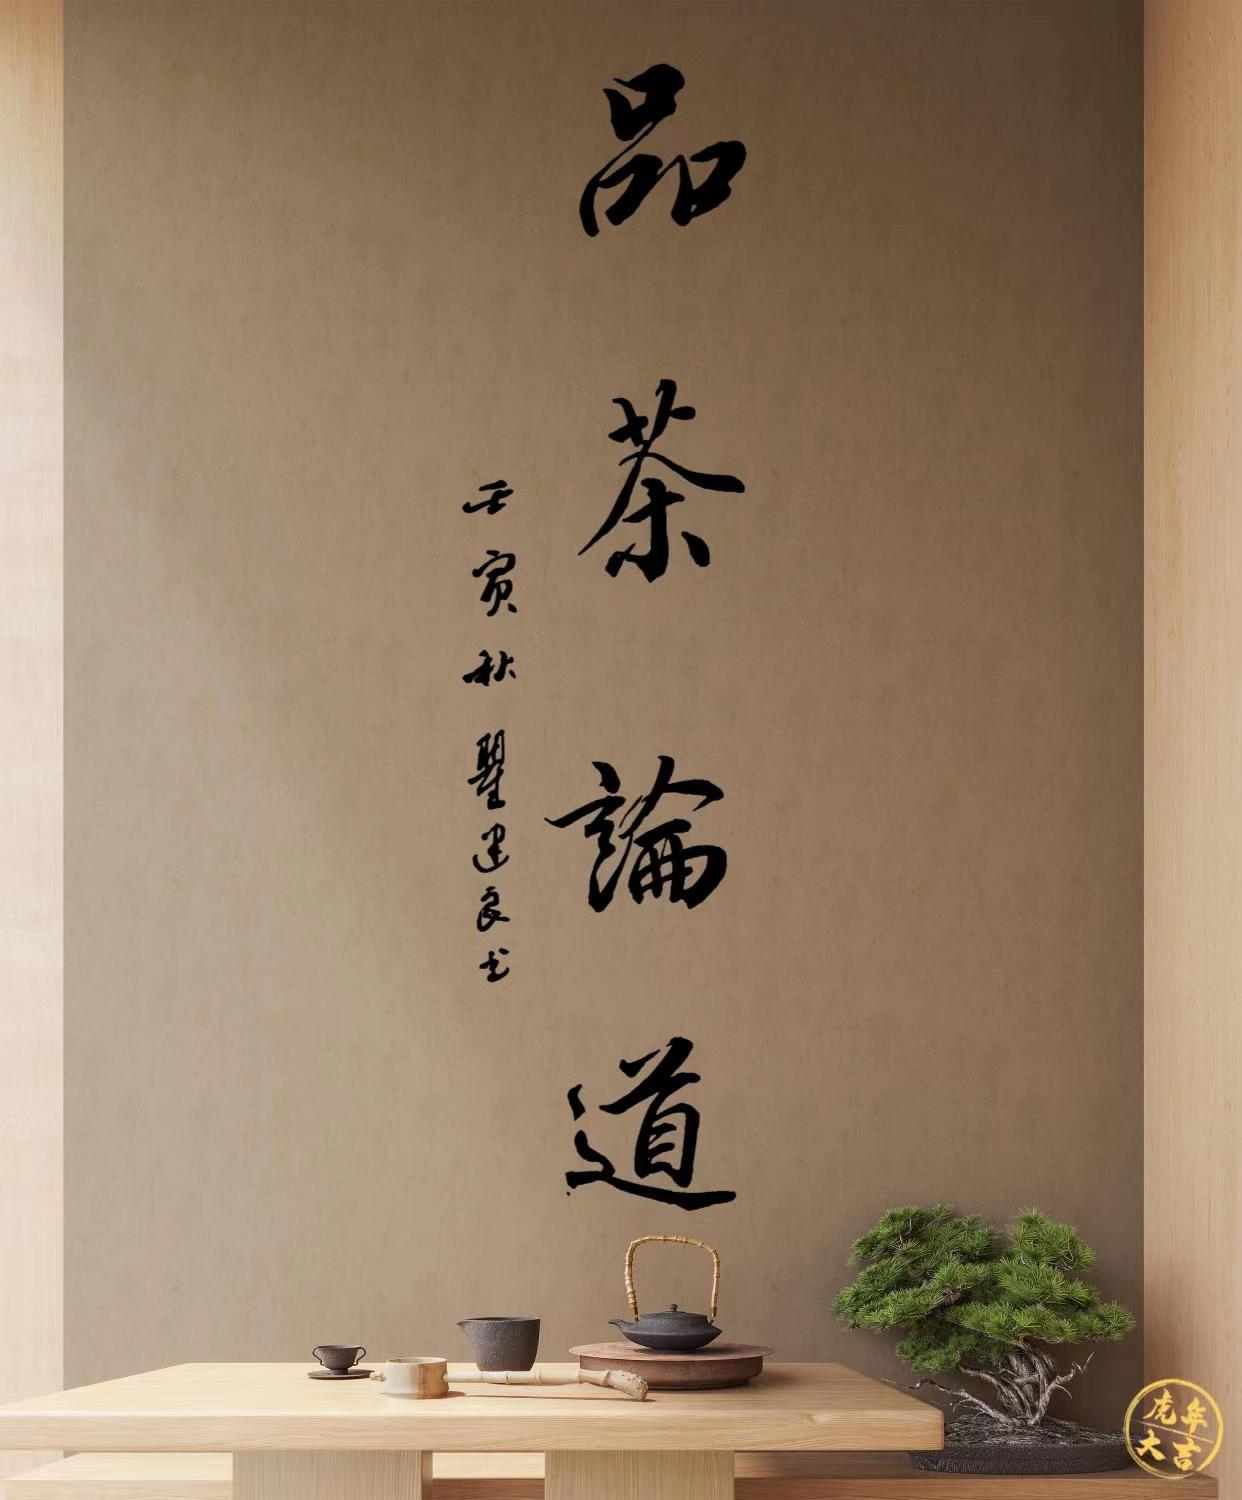 品茶論道
壬寅秋瞿建良书
虎年
大吉